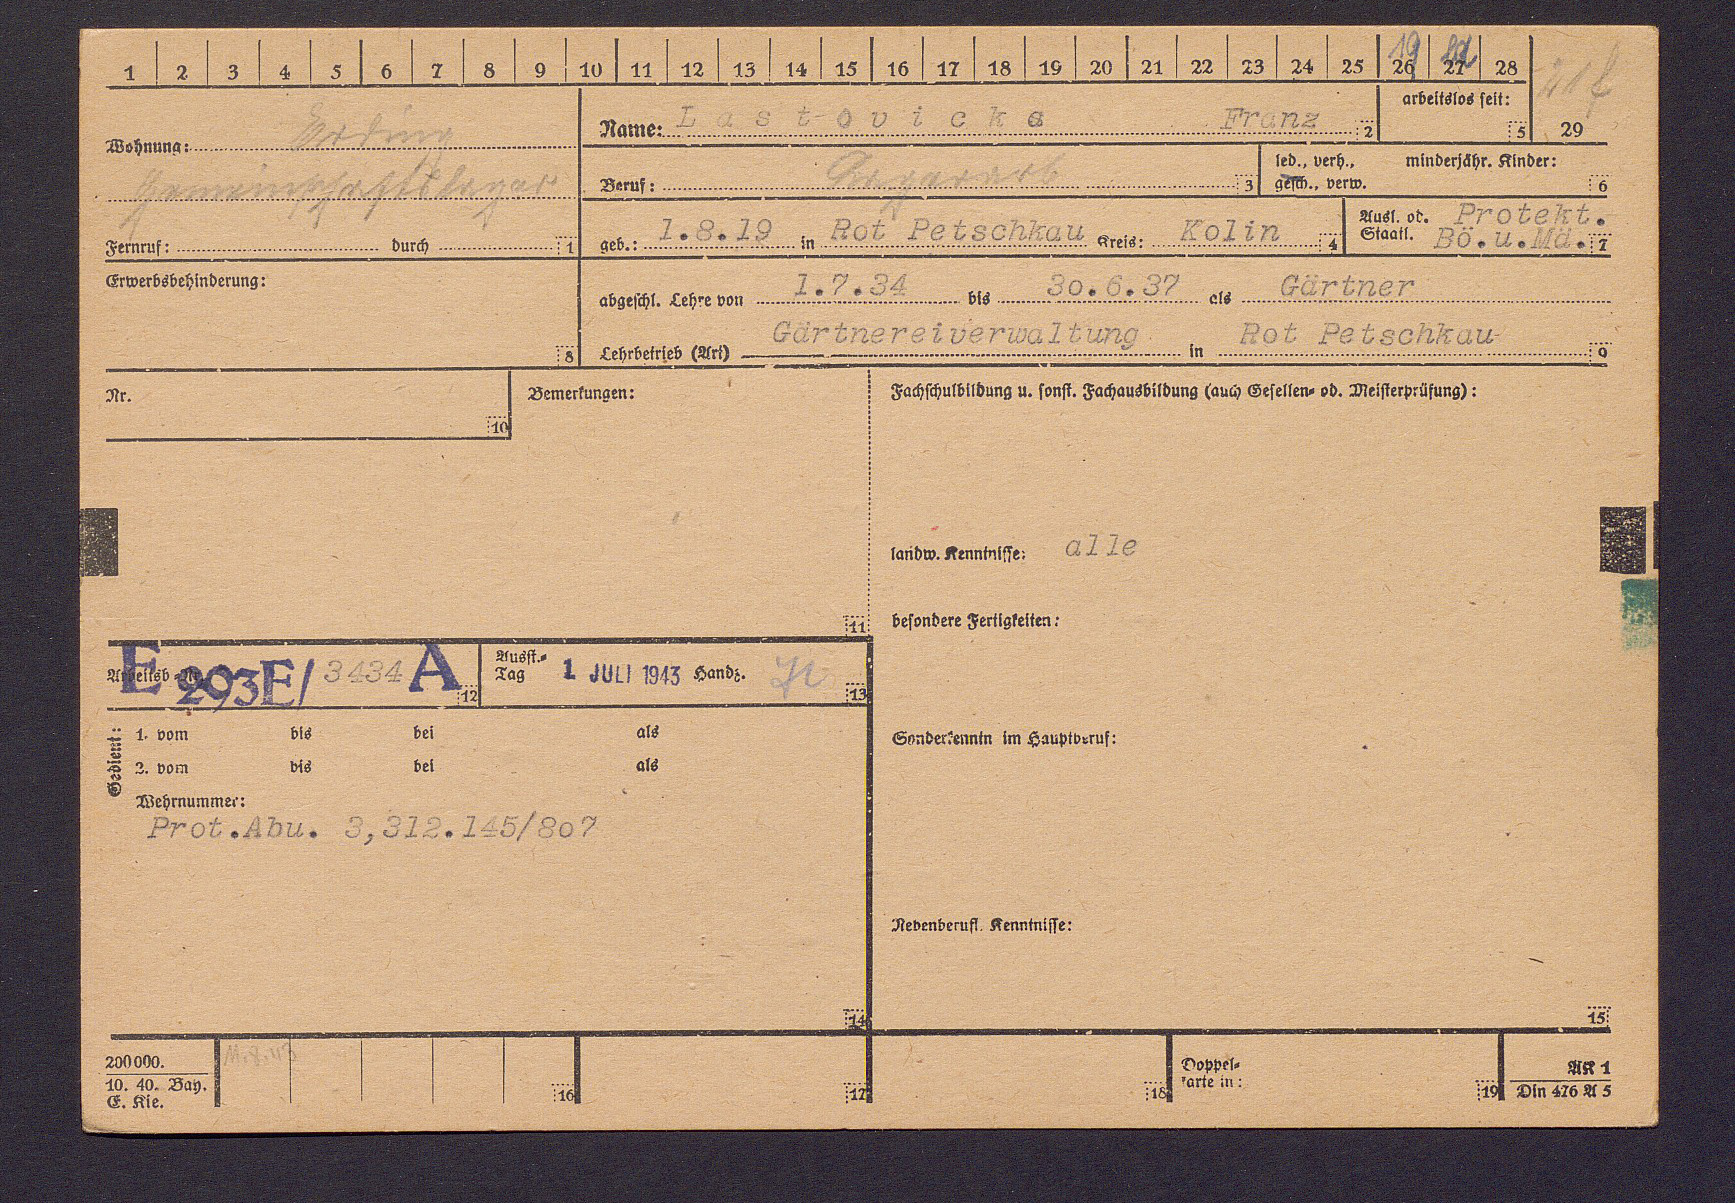 1 2 3 4 5 6 7 8 9 10 11 12 13 14 15 16 17 18 19 20 21 22 23 24 25 26 27 28
19
29
Wohnung: Erding
Gemeinschaftslager
Fernruf: durch 1
Name: Lastovicka Franz 2
arbeitslos seit: 5
Beruf: 3
led., verh., gesch., verw.
minderjähr. Kinder: 6
geb.: 1.8.19 in Rot Petschkau Kreis: Kolin 4
Ausl. od. Staatl. Protekt. Bö.u.Mä. 7
Erwerbsbehinderung: 8
abgeschl. Lehre von 1.7.34 bis 30.6.37 als Gärtner
Lehrbetrieb (Art) Gärtnereiverwaltung in Rot Petschkau 9
Nr. 10
Bemerkungen: 11
Fachschulbildung u. sonst. Fachausbildung (auch Gesellen- od. Meisterprüfung):
landw. Kenntnisse: alle
besondere Fertigkeiten:
Sonderkenntn im Hauptberuf:
Nebenberufl. Kenntnisse:
15
Arbeitsb-Nr. E 293E/ 3434 A 12
Ausst.-Tag 1 JULI 1943 Handz. 13
Gedient:
1. vom bis bei als
2. vom bis bei als
Wehrnummer:
Prot.Abu. 3,312.145/807
14
200000.
10. 40. Bay.
E. Kie.
11.8.43
16 17 18
Doppel-
karte in: 19
AK 1
Din 476 A 5